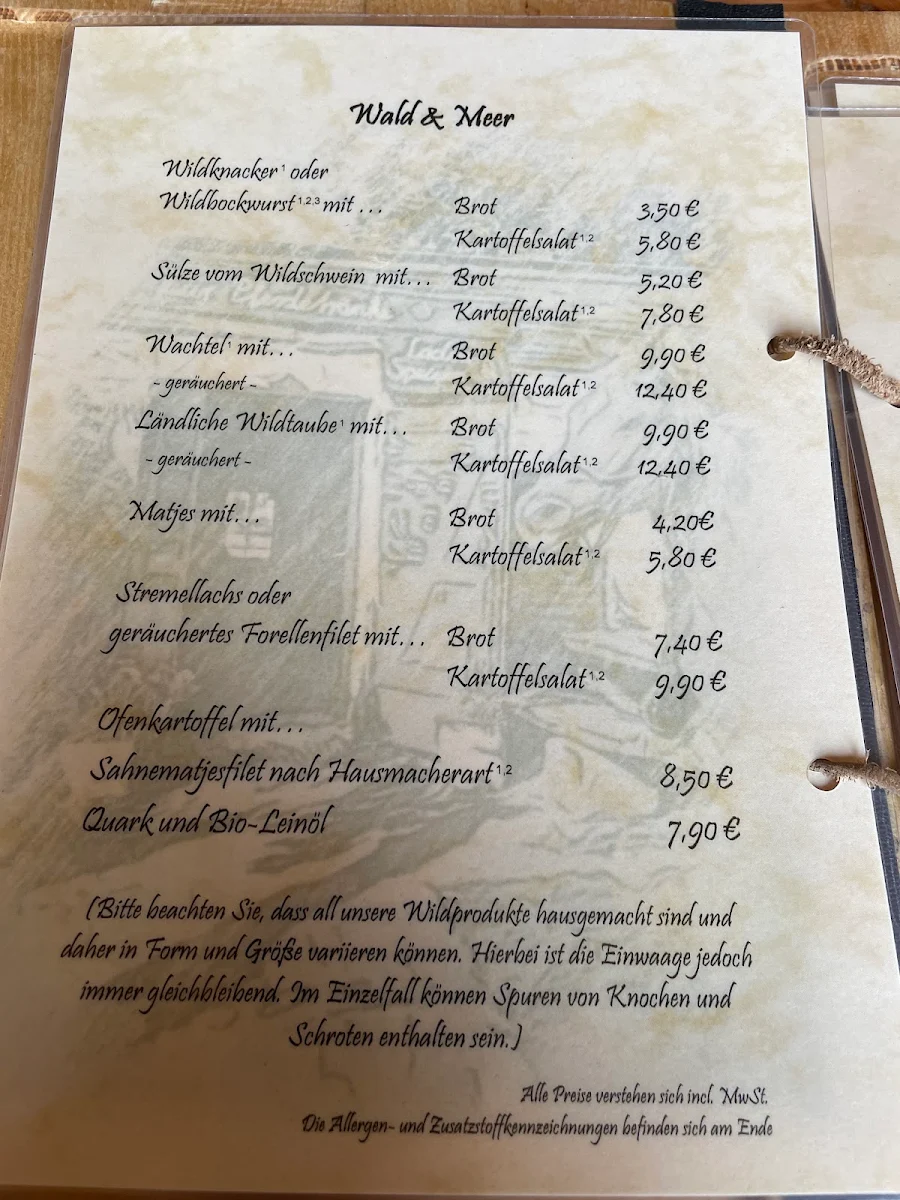 Wald & Meer
Wildknacker¹ oder
Wildbockwurst¹,²,³ mit ... Brot 3,50 €
Kartoffelsalat¹,² 5,80 €
Sülze vom Wildschwein mit... Brot 5,20 €
Kartoffelsalat¹,² 7,80 €
Wachtel¹ mit... Brot 9,90 €
- geräuchert - Kartoffelsalat¹,² 12,40 €
Ländliche Wildtaube¹ mit... Brot 9,90 €
- geräuchert - Kartoffelsalat¹,² 12,40 €
Matjes mit... Brot 4,20€
Kartoffelsalat¹,² 5,80 €
Stremellachs oder
geräuchertes Forellenfilet mit... Brot 7,40 €
Kartoffelsalat¹,² 9,90 €
Ofenkartoffel mit...
Sahnematjesfilet nach Hausmacherart¹,² 8,50 €
Quark und Bio-Leinöl 7,90 €
(Bitte beachten Sie, dass all unsere Wildprodukte hausgemacht sind und
daher in Form und Größe variieren können. Hierbei ist die Einwaage jedoch
immer gleichbleibend. Im Einzelfall können Spuren von Knochen und
Schroten enthalten sein.)
Alle Preise verstehen sich incl. MwSt.
Die Allergen- und Zusatzstoffkennzeichnungen befinden sich am Ende